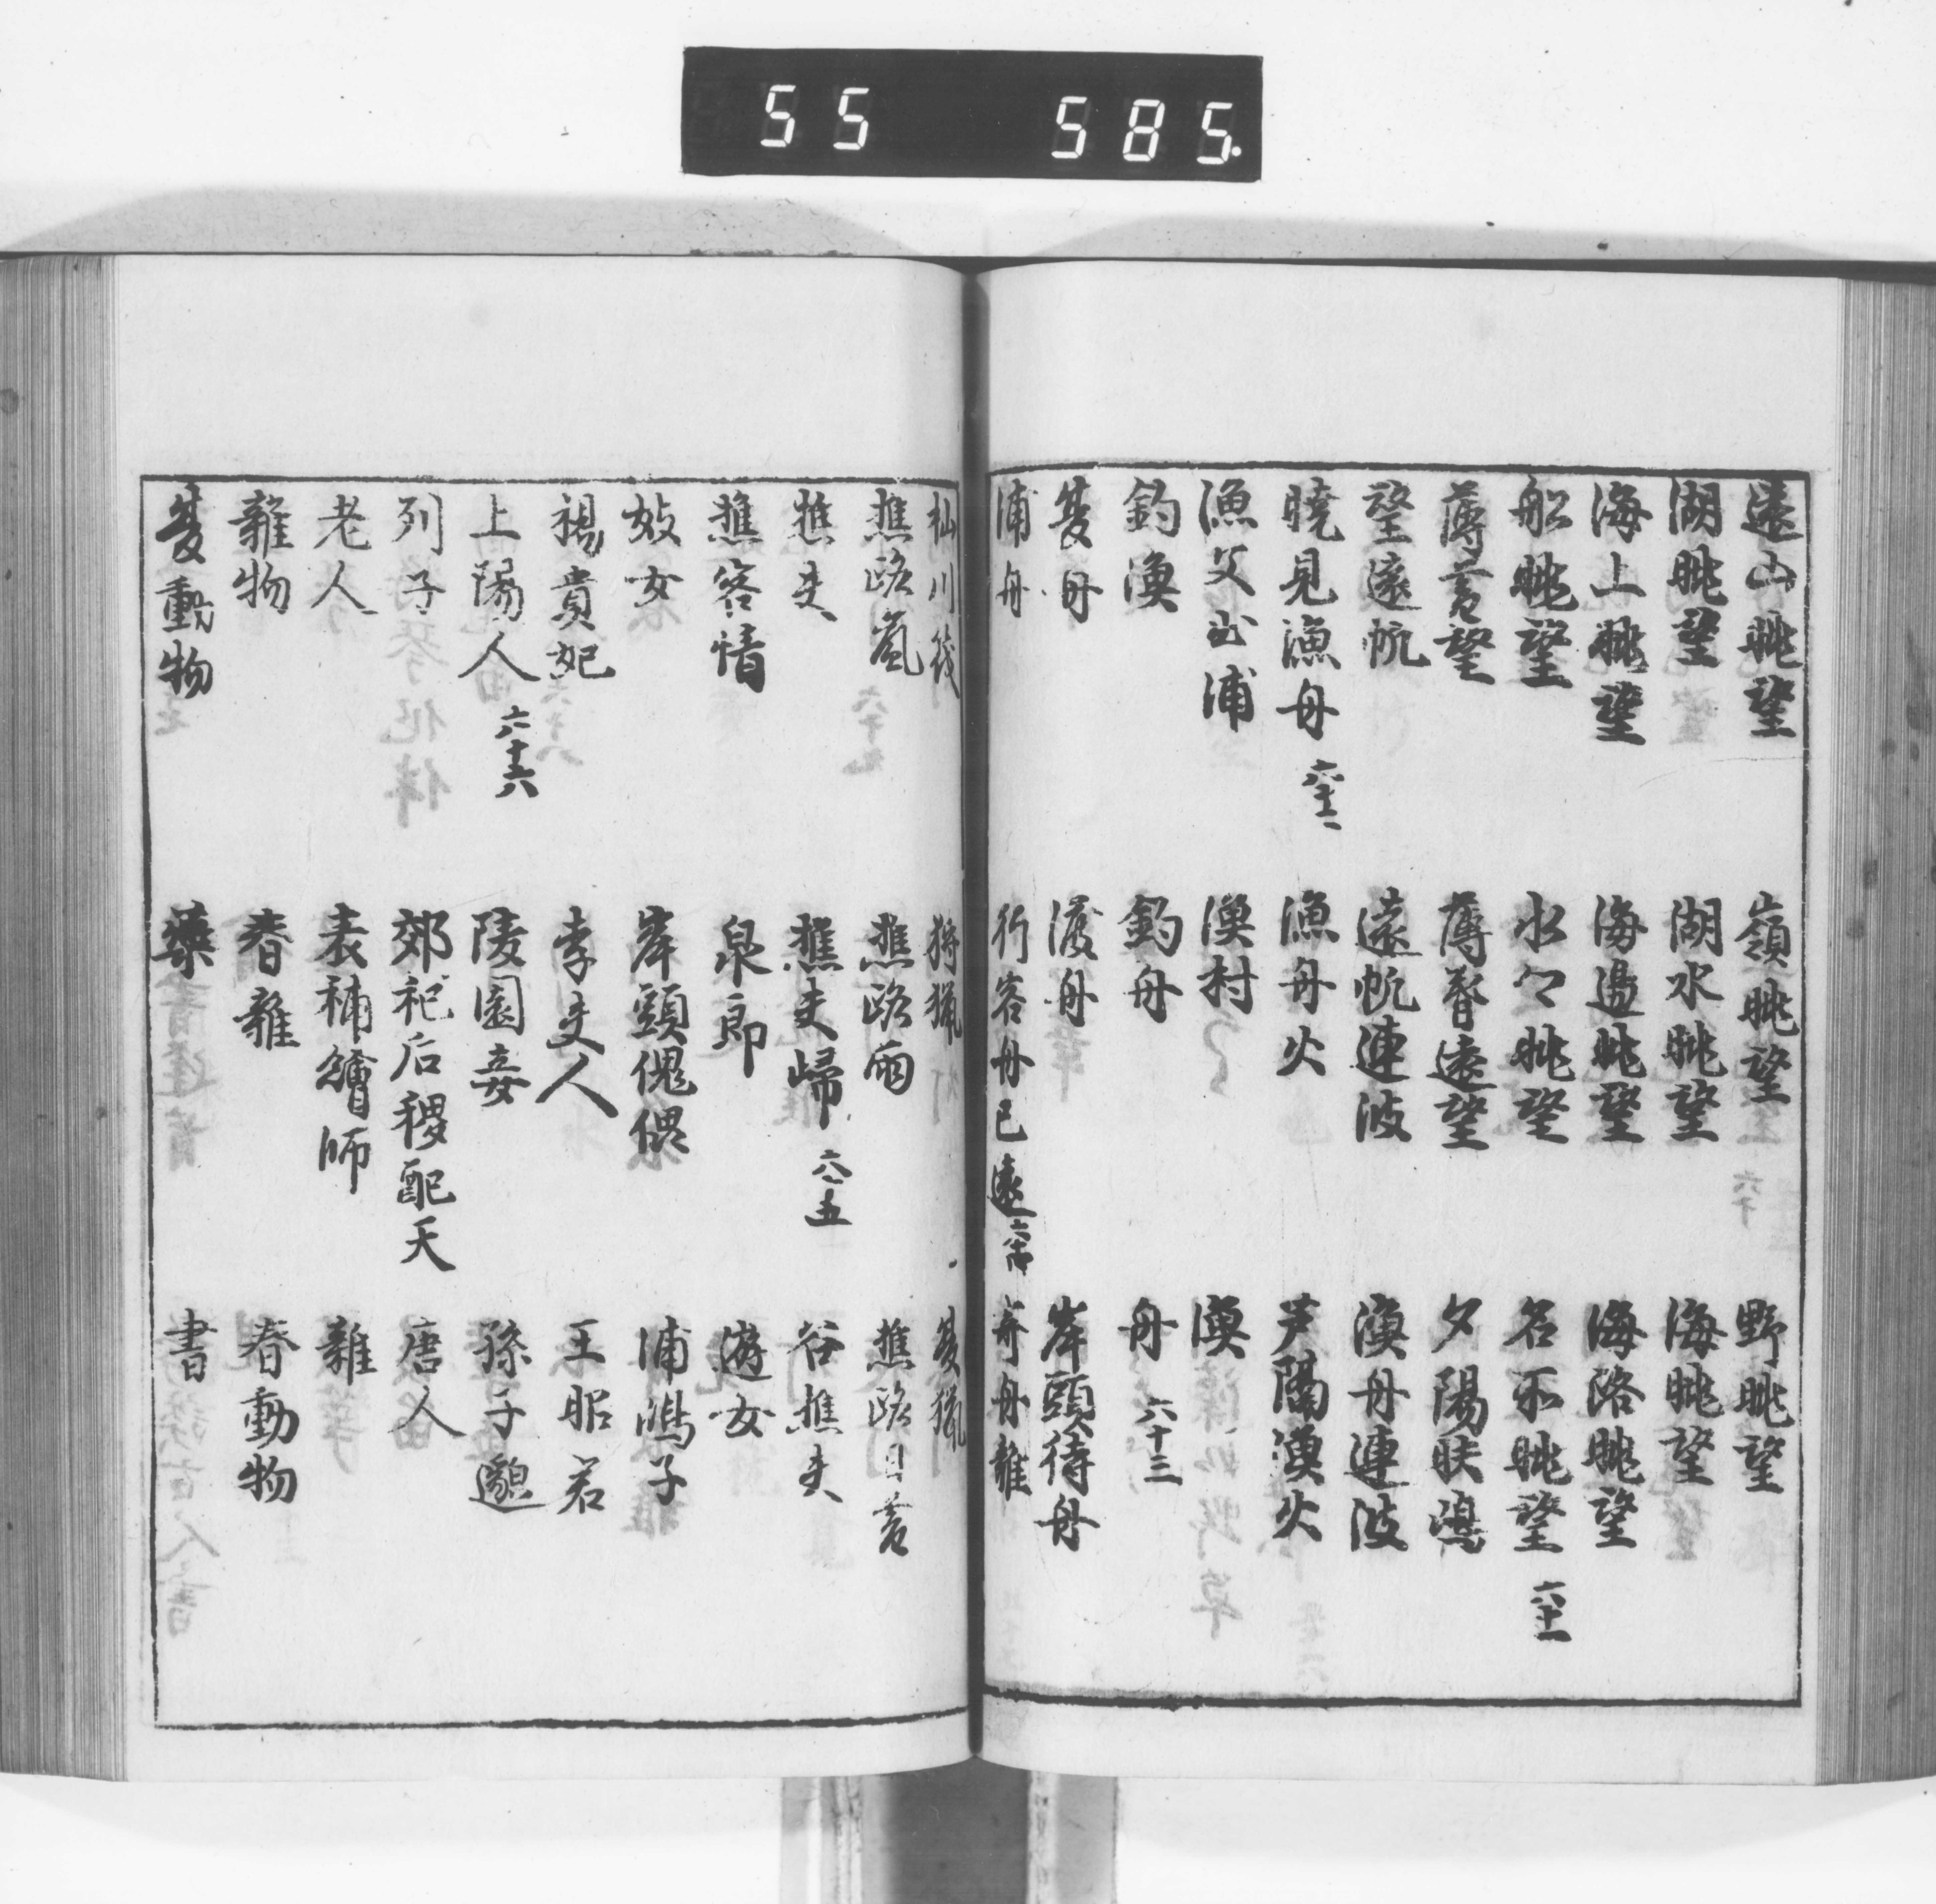 55 585.
遠山眺望 嶺眺望 野眺望
湖眺望 湖水眺望 海眺望
海上眺望 海邊眺望 海路眺望
船眺望 水々眺望 名所眺望 六十一
薄暮望 薄暮遠望 夕陽映嶋
望遠帆 遠帆連波 漁舟連波
暁見漁舟 六十二 漁舟火 芦隔漁火
漁父出浦 漁村 漁
釣漁 釣舟 舟 六十三
夜舟 渡舟 岸頭待舟
浦舟 行客舟已遠 六十四 寄舟雜
杣川筏 狩獵 夜獵
樵路嵐 樵路雨 樵路日暮
樵夫 樵夫帰 六十五 谷樵夫
樵客情 泉郎 遊女
妓女 岸頭傀儡 浦嶋子
楊貴妃 李夫人 王昭君
上陽人 六十六 陵園妾 孫子邈
列子 郊祀后稷配天 唐人
老人 表補繪師 雜
雜物 春雜 春動物
夏動物 藥 書